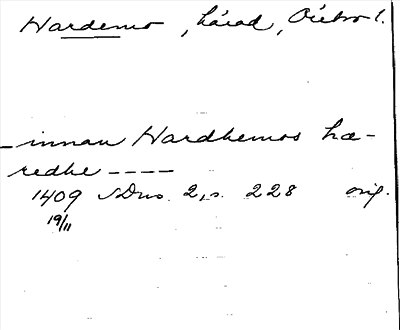 Hardemo, härad, Örebro l.
- innan Hardhemos hæ-
redhe ----
1409 SDns. 2, s. 228 orig.
19/11